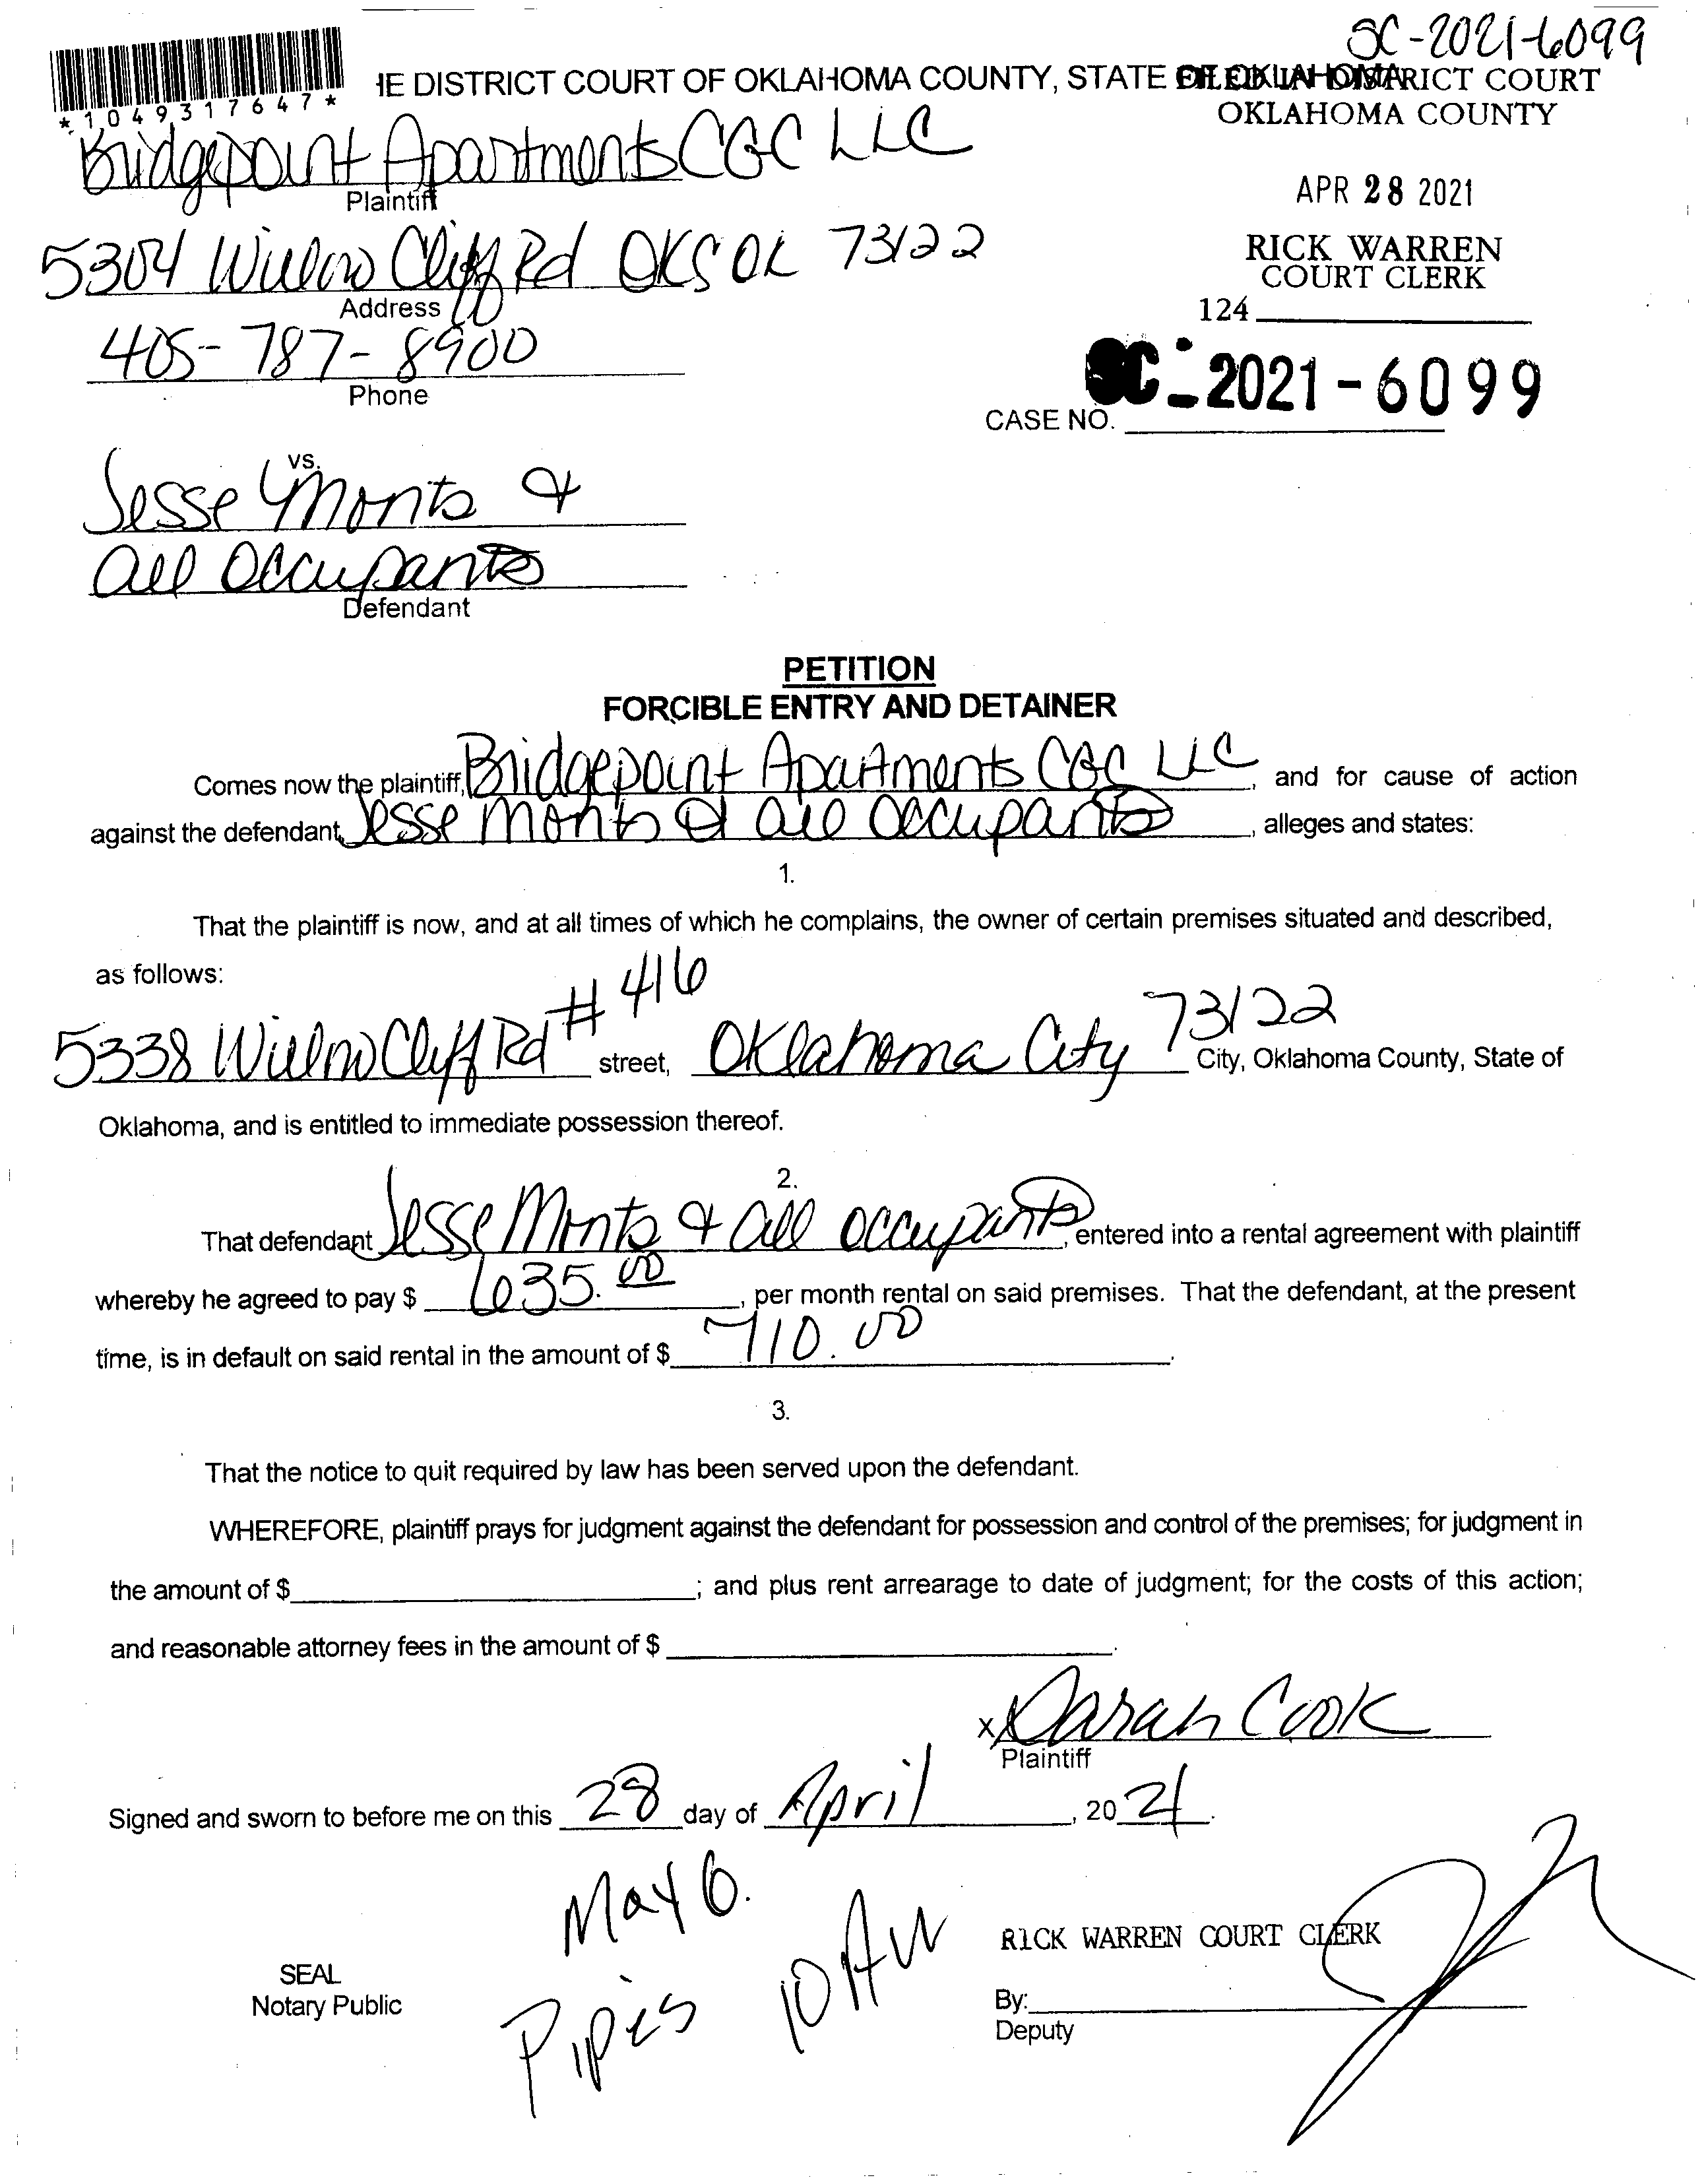 SC-2021-6099
*1049317647*
HE DISTRICT COURT OF OKLAHOMA COUNTY, STATE OF OKLAHOMA
FILED IN DISTRICT COURT
OKLAHOMA COUNTY
Bridgepoint Apartments CGC LLC
Plaintiff
APR 28 2021
5304 Willow Cliff Rd OKC OK 73122
Address
RICK WARREN
COURT CLERK
124
405-787-8900
Phone
CASE NO. SC-2021-6099
vs.
Jesse Monts &
all Occupants
Defendant
PETITION
FORCIBLE ENTRY AND DETAINER
Comes now the plaintiff, Bridgepoint Apartments CGC LLC, and for cause of action
against the defendant, Jesse Monts & all Occupants, alleges and states:
1.
That the plaintiff is now, and at all times of which he complains, the owner of certain premises situated and described,
as follows:
5338 Willow Cliff Rd #416 street, Oklahoma City 73122 City, Oklahoma County, State of
Oklahoma, and is entitled to immediate possession thereof.
2.
That defendant Jesse Monts & all occupants, entered into a rental agreement with plaintiff
whereby he agreed to pay $ 635.00, per month rental on said premises. That the defendant, at the present
time, is in default on said rental in the amount of $ 710.00.
3.
That the notice to quit required by law has been served upon the defendant.
WHEREFORE, plaintiff prays for judgment against the defendant for possession and control of the premises; for judgment in
the amount of $ ; and plus rent arrearage to date of judgment; for the costs of this action;
and reasonable attorney fees in the amount of $ .
x Sarah Cook
Plaintiff
Signed and sworn to before me on this 28 day of April, 2021.
May 6.
Pipes 10 AM
RICK WARREN COURT CLERK
SEAL
Notary Public
By:
Deputy